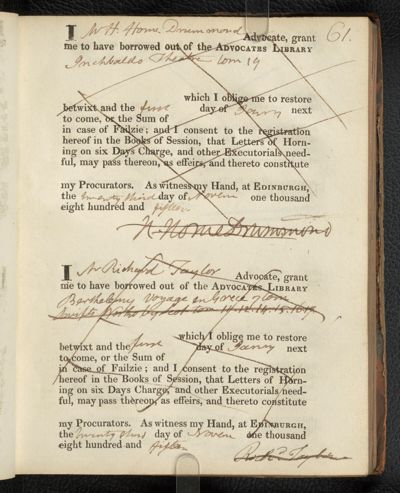 61.
I Mr H. Home Drummond Advocate, grant
me to have borrowed out of the ADVOCATES LIBRARY
Inchbalds Theatre tom 19
which I oblige me to restore
betwixt and the first day of Janry next
to come, or the Sum of
in case of Failzie; and I consent to the registration
hereof in the Books of Session, that Letters of Horn-
ing on six Days Charge, and other Executorials need-
ful, may pass thereon, as effeirs, and thereto constitute
my Procurators. As witness my Hand, at EDINBURGH,
the twenty third day of Novem one thousand
eight hundred and fifteen
H. Home Drummond
I Mr Richard Taylor Advocate, grant
me to have borrowed out of the ADVOCATES LIBRARY
Barthelemy voyage en Grece 7 tom
Swifts Works by Scot tom 11. 12. 14. 15.
which I oblige me to restore
betwixt and the first day of Janry next
to come, or the Sum of
in case of Failzie; and I consent to the registration
hereof in the Books of Session, that Letters of Horn-
ing on six Days Charge, and other Executorials need-
ful, may pass thereon, as effeirs, and thereto constitute
my Procurators. As witness my Hand, at EDINBURGH,
the twenty third day of Novem one thousand
eight hundred and fifteen